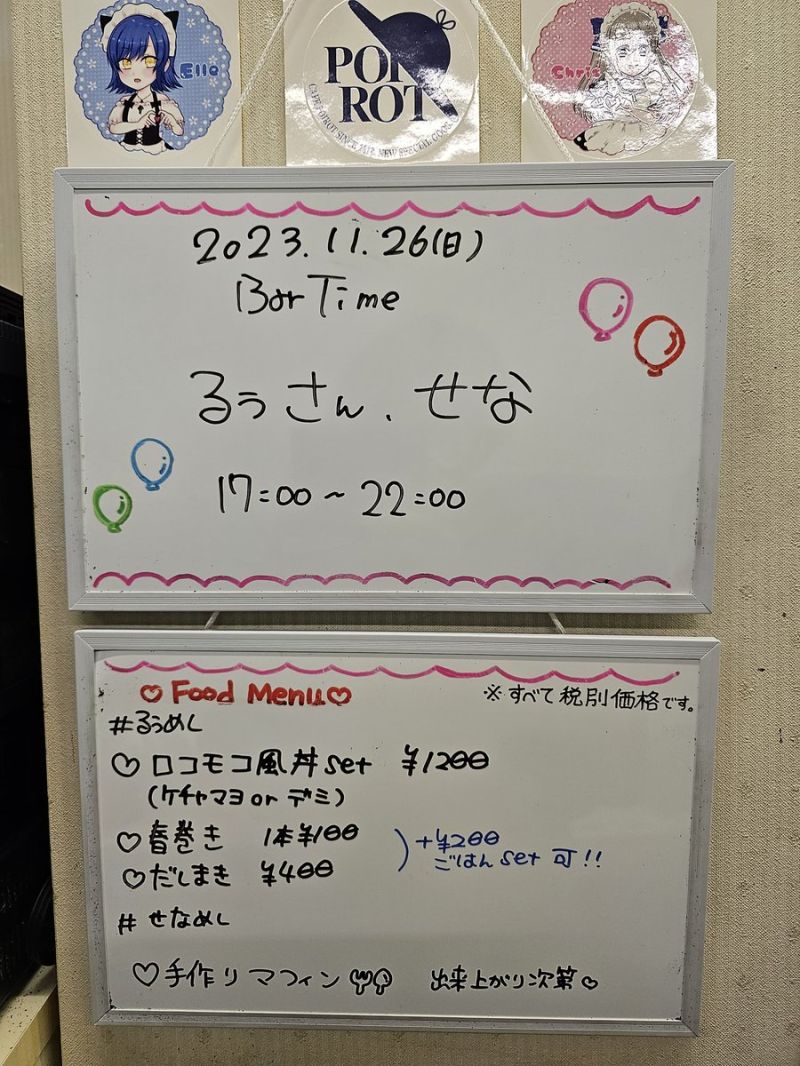 Elle
PON
ROT
CAFE PONROT SINCE 2012 NEW SPECIAL GOODS
Chris
2023.11.26(日)
Bar Time
るぅさん、せな
17:00～22:00
♡Food Menu♡
※すべて税別価格です。
#るぅめし
♡ロコモコ風丼set ¥1200
(ケチャマヨorデミ)
♡春巻き 1本¥100
♡だしまき ¥400
+¥200
ごはんset可!!
#せなめし
♡手作りマフィン 出来上がり次第♡